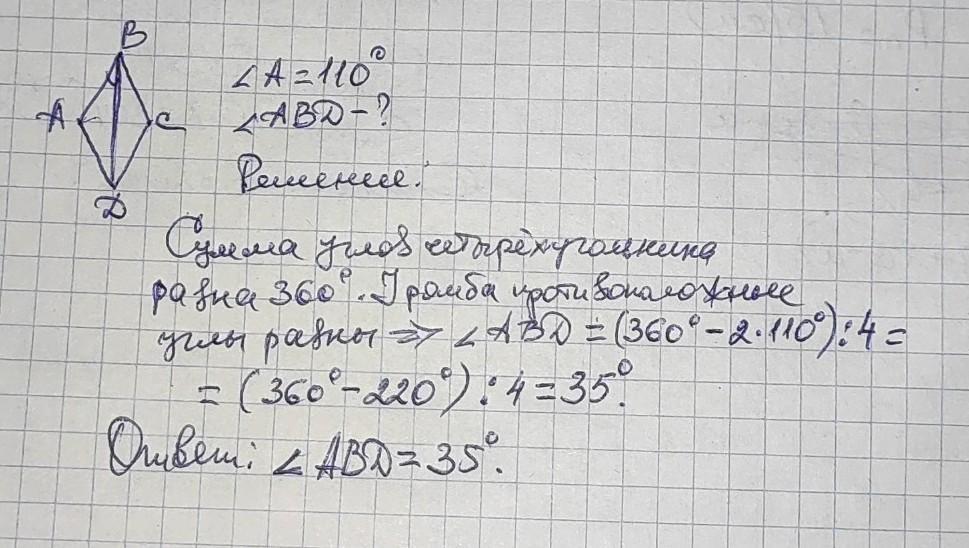 B
A
C
D
∠A = 110°
∠ABD - ?
Решение:
Сумма углов четырёхугольника
равна 360°. У ромба противоположные
углы равны ⇒ ∠ABD = (360° - 2·110°) : 4 =
= (360° - 220°) : 4 = 35°.
Ответ: ∠ABD = 35°.